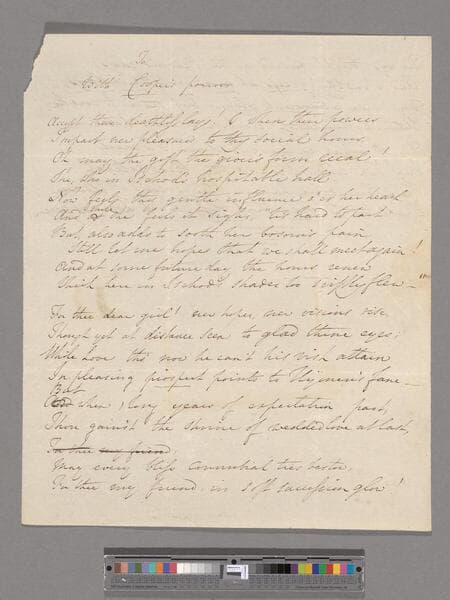 To
With Cooper's poems
Accept these deathless lays! & when their powers
Impart new pleasures to thy social hours
Oh may the gift the giver's form recal!
She, who in hospitable hall
Now feels thy gentle influence o'er her heart
And while she feels it sighs, 'tis hard to part
But, also adds to sooth her bosom's pain
Still let me hope that we shall meet again!
And at some future day the hours renew
Which here in shades too swiftly flew—
For thee dear girl! new hopes, new visions rise,
Though yet at distance seen to glad thine eyes;
While Love tho' now he can't his wish attain
In pleasing prospect points to Hymen's fane—
But
And when, long years of expectation past,
Thou gainst the shrine of wedded love at last,
To thee my friend
May every bliss connubial ties bestow,
For thee my friend in soft succession glow!